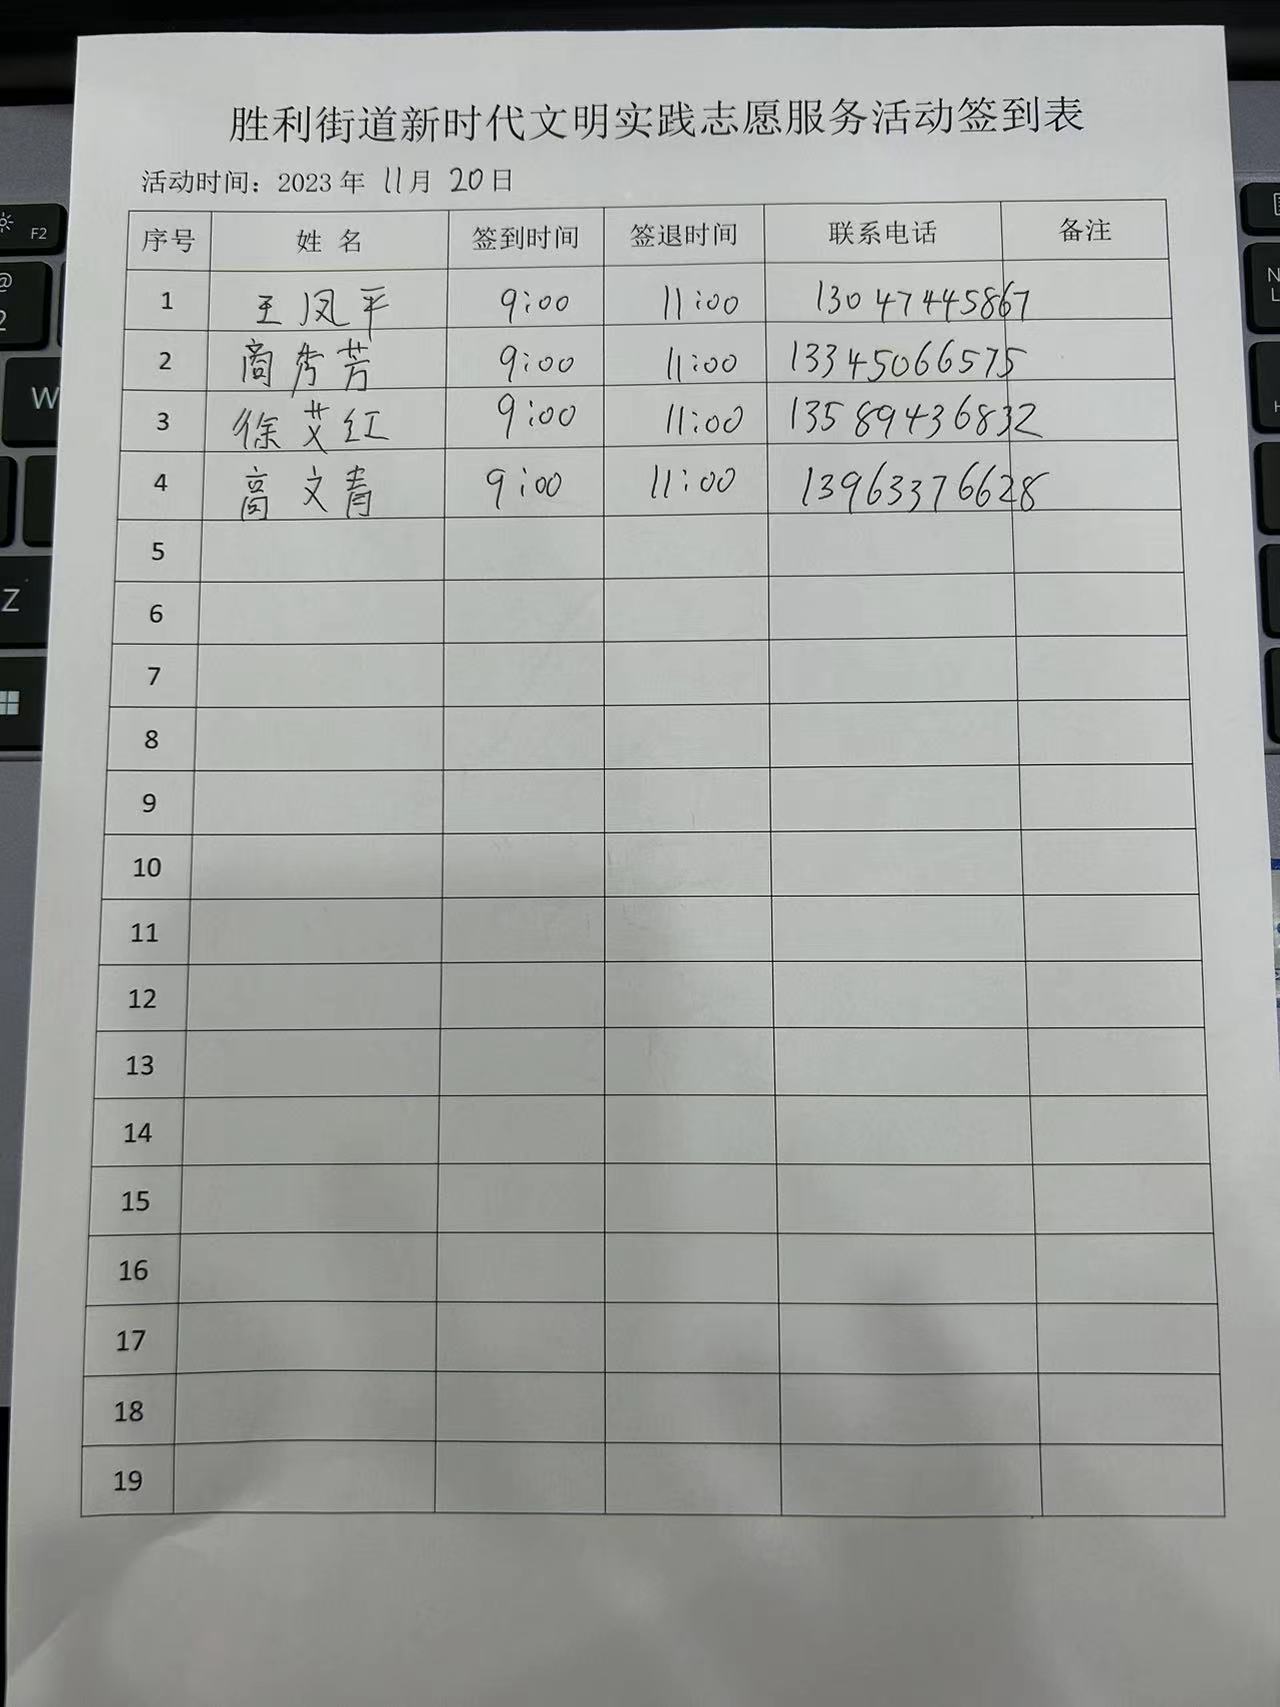 胜利街道新时代文明实践志愿服务活动签到表
活动时间：2023 年 11月 20日
序号 姓 名 签到时间 签退时间 联系电话 备注
1 王凤平 9:00 11:00 13047445867
2 商秀芳 9:00 11:00 13345066575
3 徐艾红 9:00 11:00 13589436832
4 高文青 9:00 11:00 13963376628
5
6
7
8
9
10
11
12
13
14
15
16
17
18
19
F2
@
2
W
Z
N
L